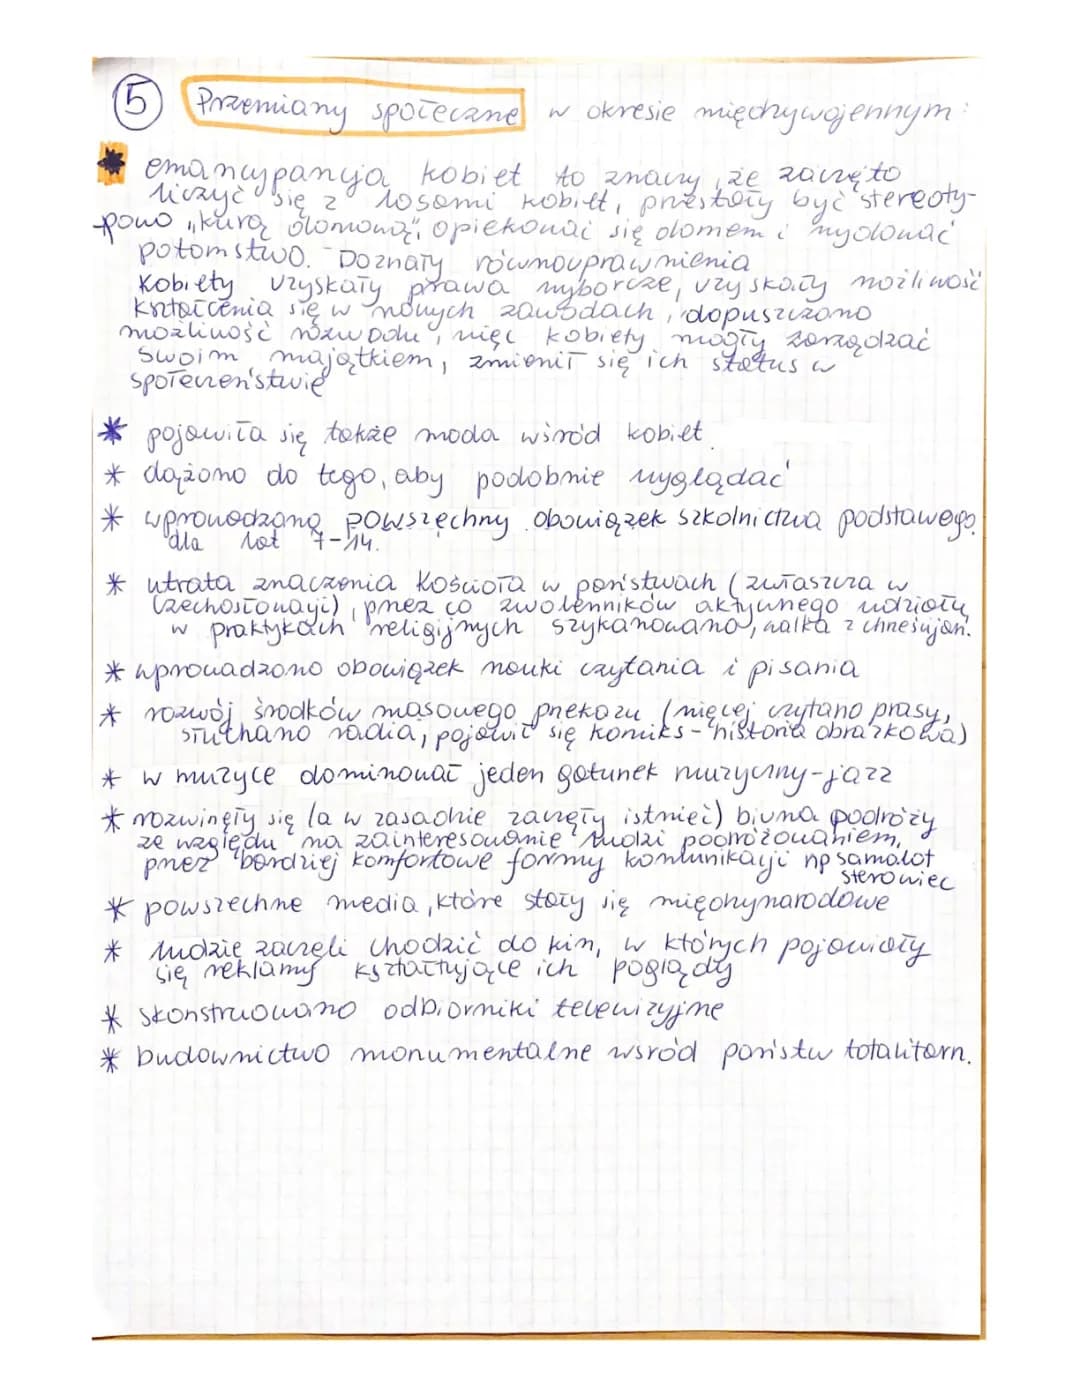 5 Przemiany społeczne w okresie międzywojennym:
* emancypancja kobiet to znaczy, że zaczęto
liczyć się z losami kobiet, przestały być stereoty-
powo „kurą domową", opiekować się domem i wydawać
potomstwo. Doznały równouprawnienia
Kobiety uzyskały prawa wyborcze, uzyskały możliwość
kształcenia się w nowych zawodach, dopuszczono
możliwość rozwodu, więc kobiety mogły zarządzać
swoim majątkiem, zmienił się ich status w
społeczeństwie
* pojawiła się także moda wśród kobiet
* dążono do tego, aby podobnie wyglądać
* wprowadzono powszechny obowiązek szkolnictwa podstawego
dla lat 7-14.
* utrata znaczenia Kościoła w państwach (zwłaszcza w
Czechosłowacji), przez co zwolenników aktywnego udziału
w praktykach religijnych szykanowano, walka z chrześcijań.
* wprowadzono obowiązek nauki czytania i pisania
* rozwój środków masowego przekazu (więcej czytano prasy,
słuchano radia, pojawił się komiks - historia obrazkowa)
* w muzyce dominował jeden gatunek muzyczny - jazz
* rozwinęły się (a w zasadnie zaczęły istnieć) biura podróży
ze względu na zainteresowanie ludzi podróżowaniem,
przez bardziej komfortowe formy komunikacji np samolot
sterowiec
* powszechne media, które stały się międzynarodowe
* ludzie zaczęli chodzić do kin, w których pojawiały
się reklamy kształtujące ich poglądy
* skonstruowano odbiorniki telewizyjne
* budownictwo monumentalne wśród państw totalitarn.